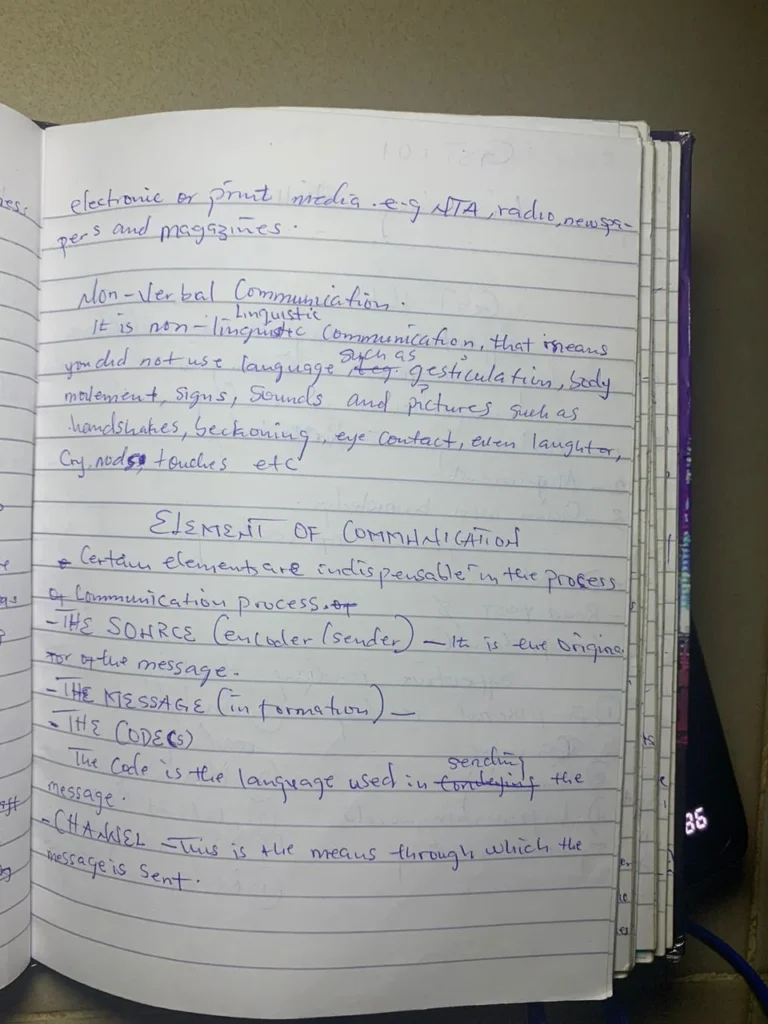 electronic or print media. e.g NTA, radio, newspa-
pers and magazines.
Non-Verbal Communication.
Linguistic
It is non-linguistic communication, that means
such as
you did not use language gesticulation, body
movement, signs, sounds and pictures such as
handshakes, beckoning, eye contact, even laughter,
Cry, nods, touches etc
ELEMENT OF COMMUNICATION
Certain elements are indispensable in the process
of Communication process. of
- THE SOURCE (encoder/sender) - It is the origina
tor of the message.
- THE MESSAGE (information) -
- THE CODE(S)
sending
The code is the language used in conveying the
message.
- CHANNEL - This is the means through which the
message is sent.